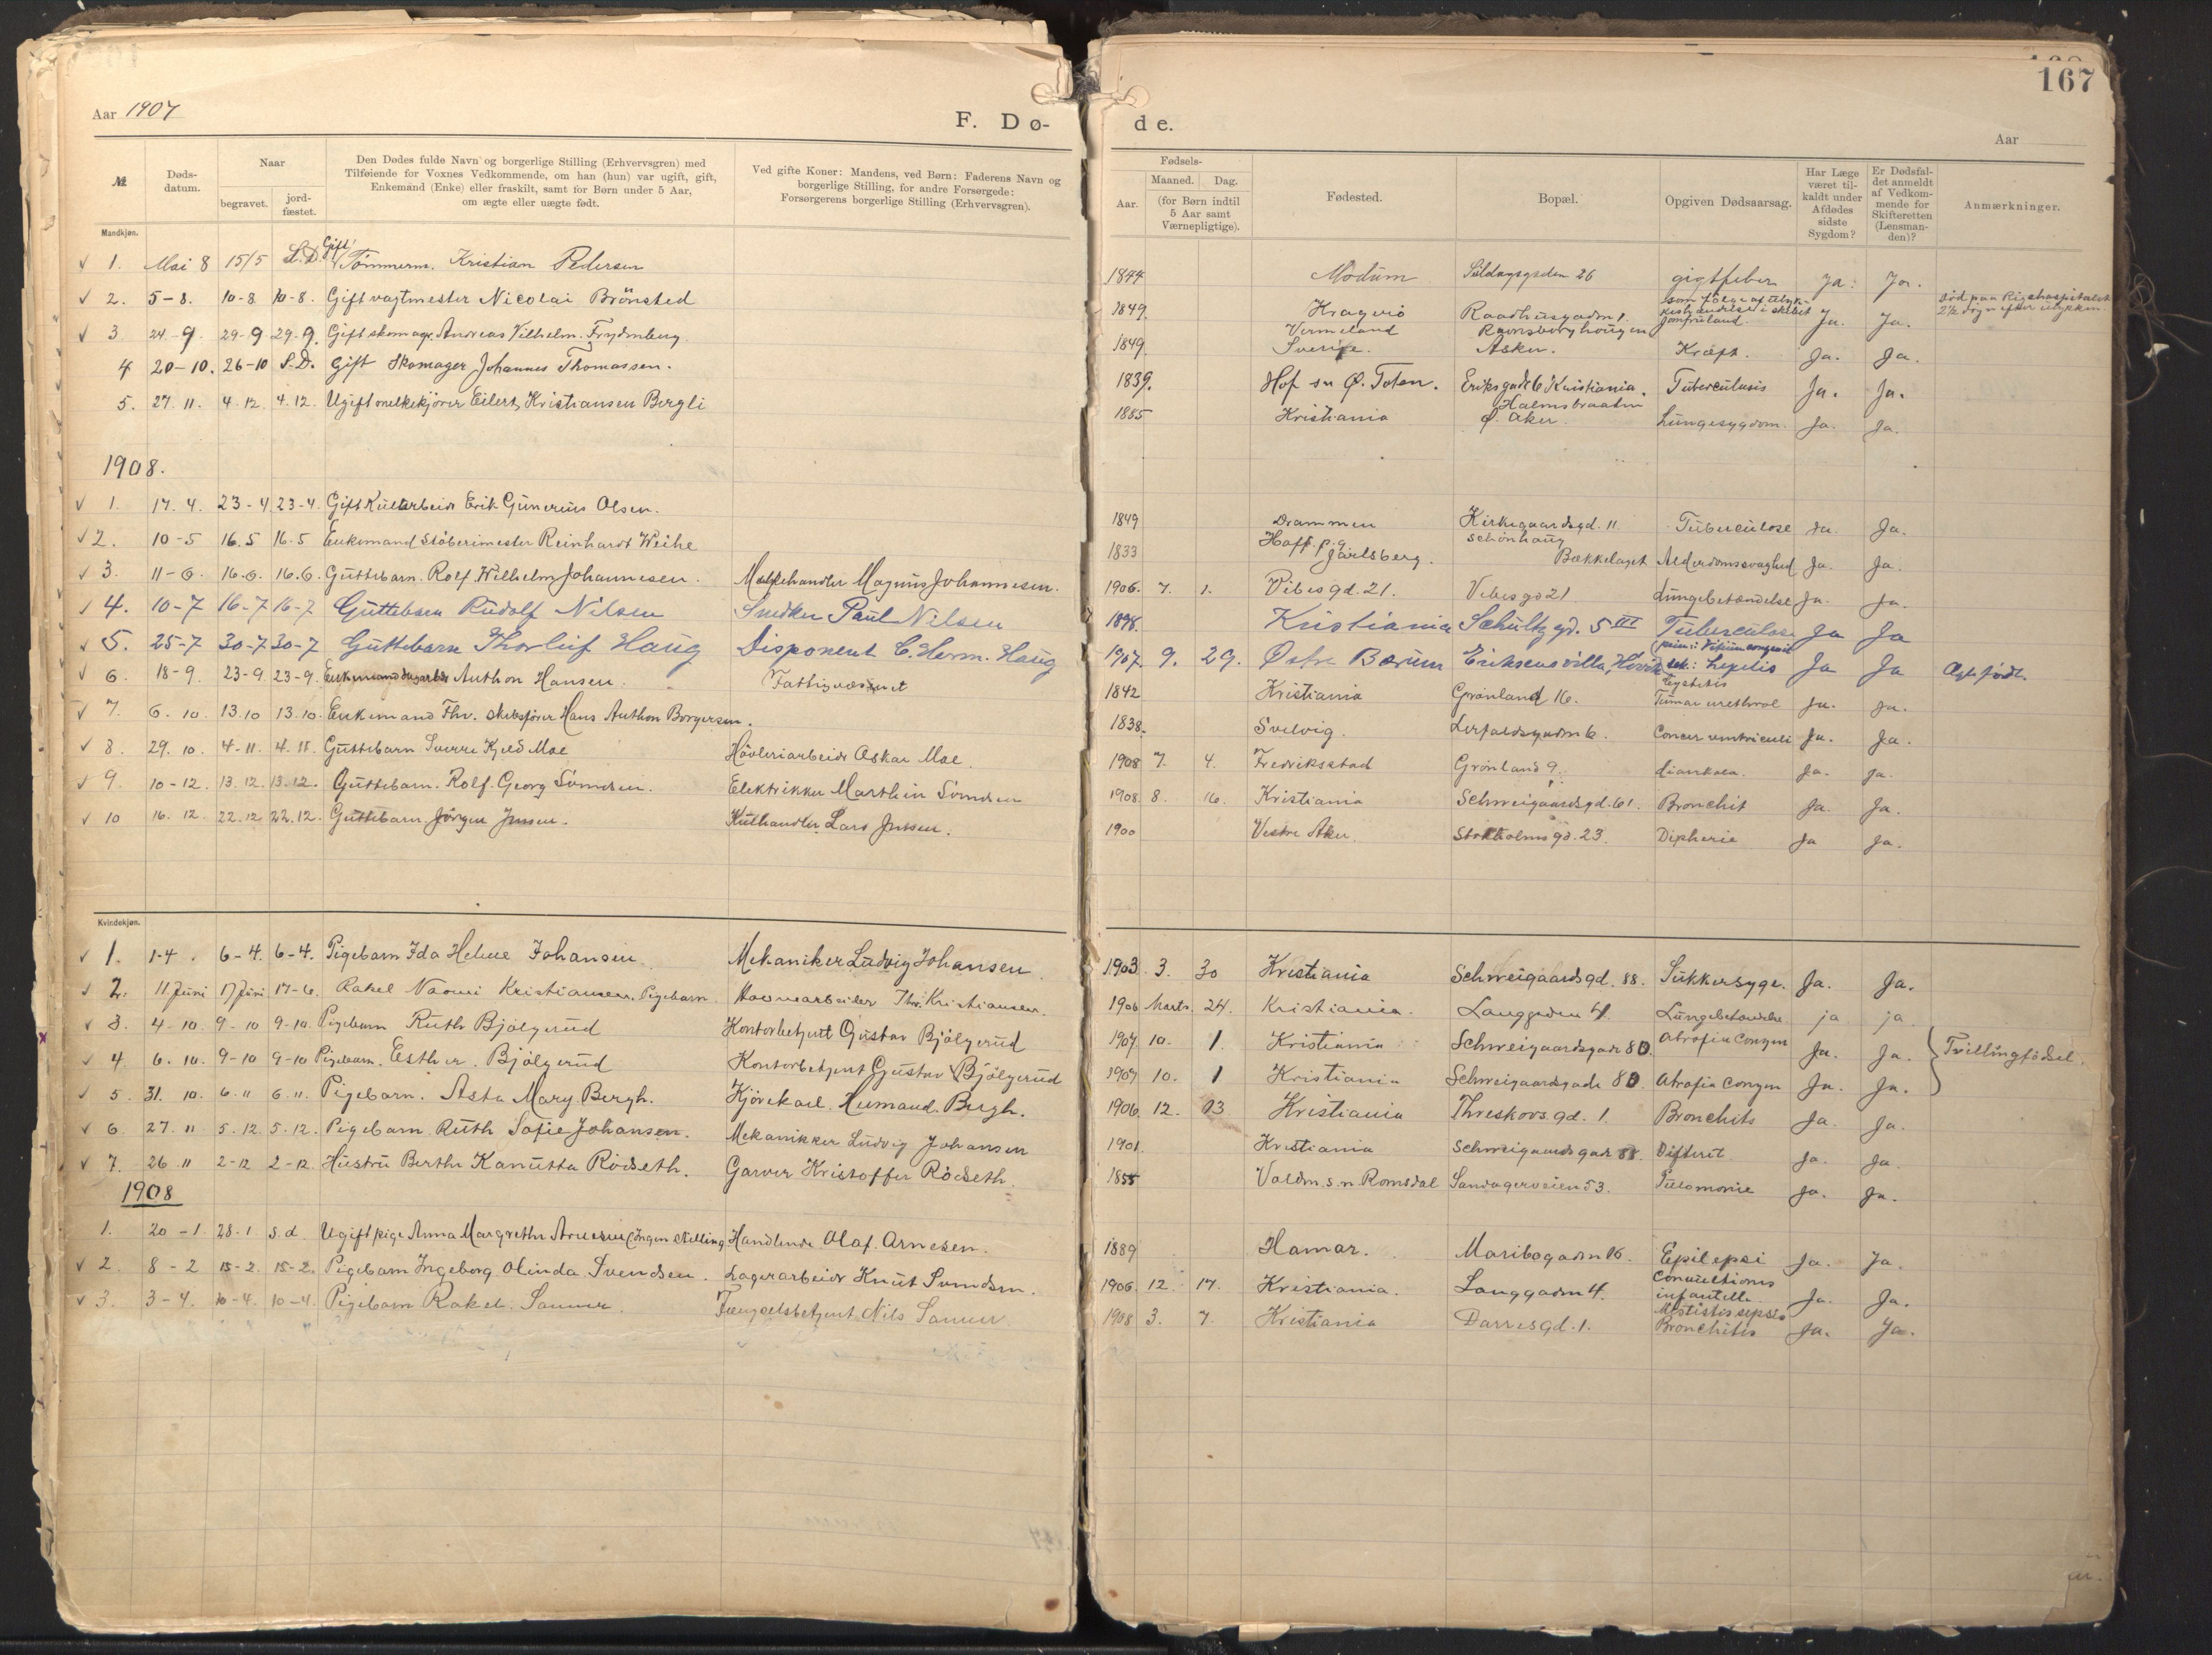 Aar 1907
F. Dø-
№
Døds-datum.
Naar
begravet.
jord-fæstet.
Den Dødes fulde Navn og borgerlige Stilling (Erhvervsgren) med
Tilføiende for Voxnes Vedkommende, om han (hun) var ugift, gift,
Enkemand (Enke) eller fraskilt, samt for Børn under 5 Aar,
om ægte eller uægte født.
Ved gifte Koner: Mandens, ved Børn: Faderens Navn og
borgerlige Stilling, for andre Forsørgede:
Forsørgerens borgerlige Stilling (Erhvervsgren).
Mandkjøn.
1. Mai 8 15/5 S.D. Gift Tømmerm. Kristian Pedersen
2. 5-8. 10-8 10-8. Gift vagtmester Nicolai Brönsted
3 24-9. 29-9 29.9. Gift skomagr. Andreas Vilhelm. Frydenberg.
4 20-10. 26-10 S.D. Gift Skomager Johannes Thomassen.
5. 27. 11. 4.12. 4.12. Ugift melkekjører Eilert Kristiansen Bergli
1908.
1. 17.4. 23-4 23-4. Gift Kularbeider Erik Gunerius Olsen.
2. 10-5 16.5 16-5 Enkemand Støberimester Reinhardt Weihe
3. 11-6. 16.6. 16.6. Guttebarn. Rolf Wilhelm Johannesen. Melkehandler Magnus Johannesen.
4. 10-7 16-7 16-7 Guttebarn Rudolf Nilsen Snedker Paul Nilsen
5. 25-7 30-7 30-7 Guttebarn Thorleif Haug Disponent C. Herm. Haug
6. 18-9. 23-9. 23-9. Enkemand Anthon Hansen. Fattigvæsenet
7. 6. 10. 13.10 13.10. Enkemand Fhv. skibsfører Hans Anthon Borgersen.
8. 29. 10. 4-11. 4.11. Guttebarn Sverre Kjeld Moe Høvleriarbeider Oskar Moe.
9. 10-12. 13.12. 13.12. Guttebarn. Rolf. Georg Svendsen. Elektrikker Marthin Svendsen
10 16. 12. 22.12 22.12. Guttebarn. Jørgen Jensen. Kulhandler Lars Jensen.
Kvindekjøn.
1. 1-4. 6-4. 6-4. Pigebarn Ida Helene Johansen. Mekaniker Ludvig Johansen.
2. 11 Juni 17 Juni 17-6. Rakel Naomi Kristiansen, Pigebarn. Havnearbeider Thr. Kristiansen.
3. 4. 10. 9-10 9-10. Pigebarn Ruth Bjølgerud Kontorbetjent Gustav Bjølgerud
4 6. 10. 9-10 9-10 Pigebarn. Esther. Bjølgerud Kontorbetjent Gustav Bjølgerud
5. 31. 10. 6.11 6.11. Pigebarn. Asta Mary Bergh. Kjørekarl. Bergh.
6. 27. 11 5.12. 5.12. Pigebarn. Ruth Sofie Johansen. Mekanikker Ludvig Johansen
7. 26. 11 2-12 2-12. Hustru Berthe Kanutta Rödseth. Garver Kristoffer Rödseth.
1908
1. 20-1. 28.1 S.d. Ugift pige Anna Margrethe Arnesen (Ingen Stilling Handlende Olaf. Arnesen.
2. 8-2 15-2. 15-2. Pigebarn Ingeborg. Olinda Svendsen. Lagerarbeider Knut Svendsen.
3. 3-4. 10-4. 10-4. Pigebarn Rakel. Sanner. Fængselsbetjent Nils Sanner.
167
de.
Aar
Fødsels-
Aar.
Maaned.
Dag.
(for Børn indtil
5 Aar samt
Værnepligtige).
Fødested.
Bopæl.
Opgiven Dødsaarsag.
Har Læge
været til-
kaldt under
Afdødes
sidste
Sygdom?
Er Dødsfal-
det anmeldt
af Vedkom-
mende for
Skifteretten
(Lensman-
den)?
Anmærkninger.
1844 Modum 26 gigtfeber Ja. Ja.
1849. Kragerø Raadhusgaden 1. som følge af ulyk-
i skibet Jomfruland. Ja. Ja. død paa Rigshospitalet
2½ døgn efter ulykken.
1849. Vermeland Sverige. Ravnsborghougen Asker. Kræft. Ja. Ja.
1839. Hof sn Ø. Toten. Eriksgade 6 Kristiania. Tuberculosis Ja. Ja.
1885 Kristiania Halmsbraaten Ø. Aker. Lungesygdom. Ja. Ja.
1849 Drammen Kirkegaardsgd. 11. Tuberculose Ja. Ja.
1833 Hoff. p.g. Jarlsberg. Schönhaug Bækkelaget Alderdomssvaghed Ja. Ja.
1906. 7. 1. Vibesgd. 21. Vibesgd 21. Lungebetændelse Ja. Ja.
1898. Kristiania Schultzgd. 5 III Tuberculose Ja Ja
1907. 9. 29. Østre Bærum Eriksens villa, Høvik Vitium congenit sek: Ja Ja Ægte født.
1842 Kristiania Grønland 16. Tumor urethral Ja. Ja.
1838. Svelvig. Lerfaldsgaden 6. Cancer ventriculi Ja. Ja.
1908 7. 4. Fredriksstad Grønland 9. diarrhoea. Ja. Ja.
1908. 8. 16. Kristiania Schweigaardsgd. 61. Bronchit Ja. Ja.
1900 Vestre Aker. Stockholmsgd. 23. Dipherie Ja Ja.
1903. 3. 30 Kristiania Schweigaardsgd. 88. Sukkersyge. Ja. Ja.
1906 Marts. 24. Kristiania. Langgaden 4. Lungebetændelse. ja ja
1907 10. 1. Kristiania Schweigaardsgade 80. Atrofia Congen Ja. Ja. Tvillingfødsel.
1907 10. 1 Kristiania Schweigaardsgade 80. Atrofia Congen Ja. Ja.
1906. 12. 13 Kristiania Threskovs.gd. 1. Bronchits Ja. Ja.
1901. Kristiania Schweigaardsgade 88. Difterit. Ja. Ja.
1855 Voldm.s.n Romsdal Sandagerveien 53. Ja. Ja.
1889 Hamar. Maribogaden 16. Epilepsi Ja. Ja.
1906. 12. 17. Kristiania. Langgaden 4. Convultions infantelle Ja. Ja.
1908 3. 7. Kristiania Darresgd. 1. Bronchitis Ja. Ja.